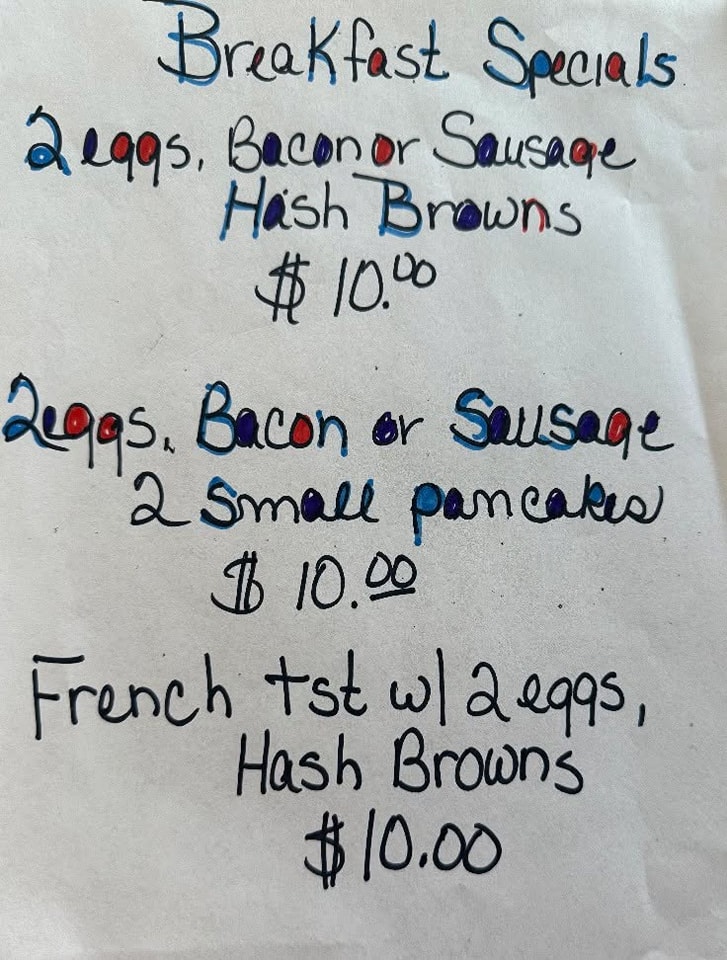 Breakfast Specials
2 eggs, Bacon or Sausage
Hash Browns
$ 10.00
2 eggs, Bacon or Sausage
2 small pancakes
$ 10.00
French tst w/ 2 eggs,
Hash Browns
$10.00